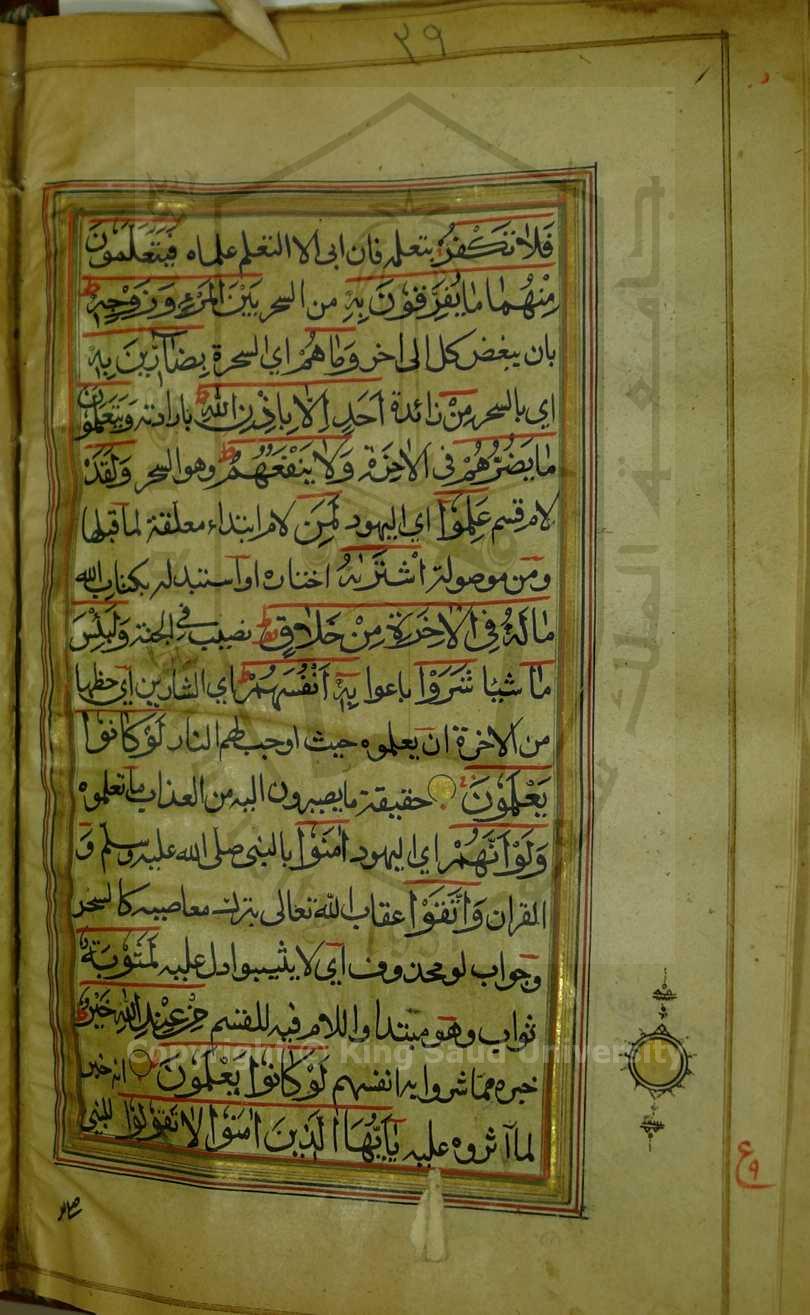 ٢٩
فَلَا تَكْفُرْ بتعلمه فان ابى الا التعلم علماه فَيَتَعَلَّمُونَ
مِنْهُمَا مَا يُفَرِّقُونَ بِهِ من السحر بَيْنَ الْمَرْءِ وَزَوْجِهِ ط
بان يبغض كل الى اخر وَمَا هُمْ اي السحرة بِضَارِّينَ بِهِ
اي بالسحر مِنْ زائدة اَحَدٍ اِلَّا بِاِذْنِ اللهِ ط بارادته وَيَتَعَلَّمُونَ
مَا يَضُرُّهُمْ فى الاخرة وَلَا يَنْفَعُهُمْ ط وهو السحر وَلَقَدْ
لام قسم عَلِمُوْا اي اليهود لَمَنِ لام ابتداء معلقة لما قبلها
ومن موصولة اشْتَرٰىهُ اختاره او استبدله بكتاب الله
مَا لَهُ فِى الْاٰخِرَةِ مِنْ خَلَاقٍ ط نصيب في الجنة وَلَبِئْسَ
مَا شيئا شَرَوْا باعوا بِهِ اَنْفُسَهُمْ ط اي الشارين اي حظها
من الاخرة ان يعلموه حيث اوجب لهم النار لَوْ كَانُوْا
يَعْلَمُوْنَ حقيقة ما يصيرون اليه من العذاب ما تعلموه
وَلَوْ اَنَّهُمْ اي اليهود اٰمَنُوْا بالنبى صلى الله عليه وسلم و
القران وَاتَّقَوْا عقاب الله تعالى بترك معاصيه كالسحر
وجواب لو محذوف اي لا يثيبوا دل عليه لَمَثُوْبَةٌ
ثواب وهو مبتدا واللام فيه للقسم مِّنْ عِنْدِ اللهِ خَيْرٌ ط
خبره مما شروا به انفسهم لَوْ كَانُوْا يَعْلَمُوْنَ انه خير
لما آثروه عليه يٰاَيُّهَا الَّذِيْنَ اٰمَنُوْا لَا تَقُوْلُوْا للنبى
ع
٩
جامعة الملك
Copyright © King Saud University